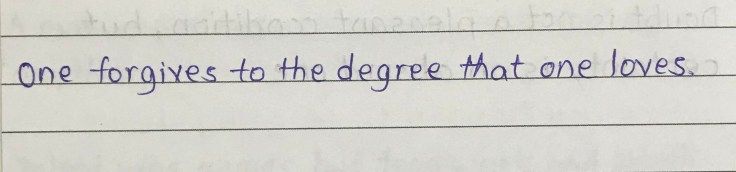 One forgives to the degree that one loves.